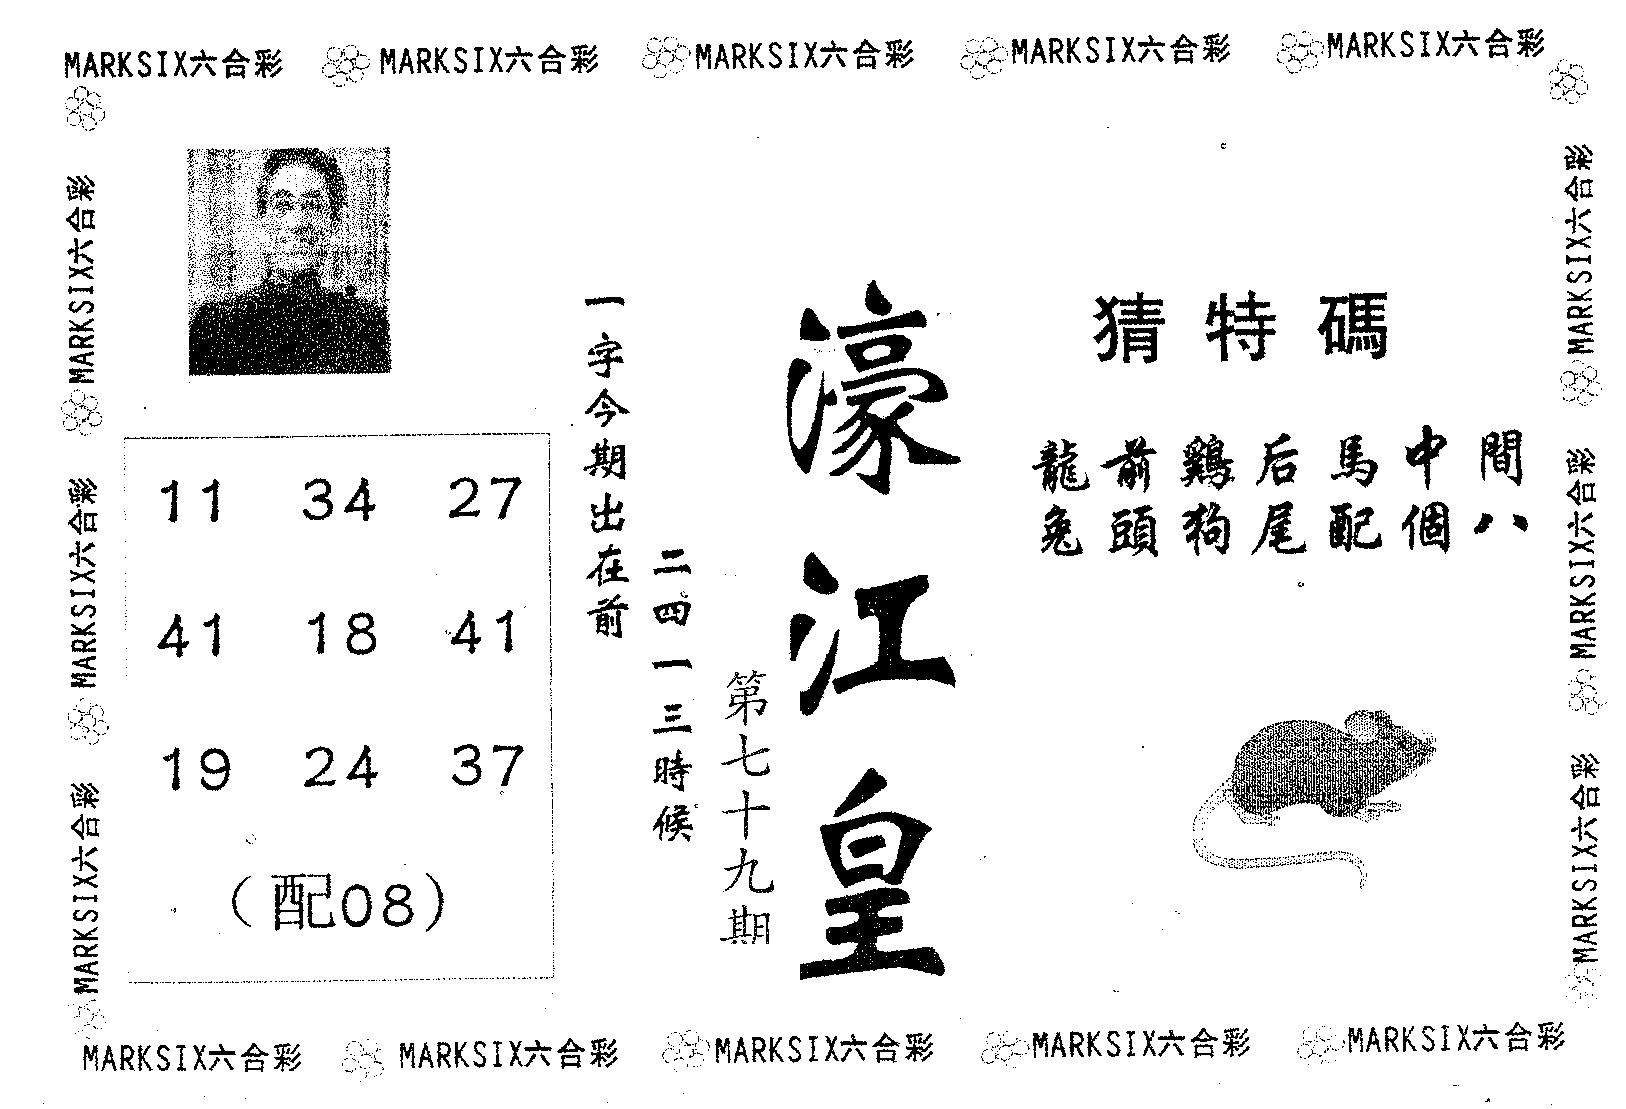 MARKSIX六合彩 MARKSIX六合彩 MARKSIX六合彩 MARKSIX六合彩 MARKSIX六合彩
MARKSIX六合彩
MARKSIX六合彩
MARKSIX六合彩
11 34 27
41 18 41
19 24 37
（配08）
一字今期出在前
二四一三時候
第七十九期
濠江皇
猜特碼
龍前鷄后馬中間
兔頭狗尾配個八
MARKSIX六合彩
MARKSIX六合彩
MARKSIX六合彩
MARKSIX六合彩 MARKSIX六合彩 MARKSIX六合彩 MARKSIX六合彩 MARKSIX六合彩